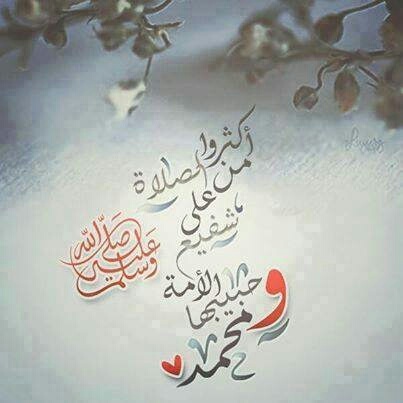 أكثروا
من الصلاة
على
شفيع
الأمة
و حبيبها
محمد
صلى الله
عليه
وسلم